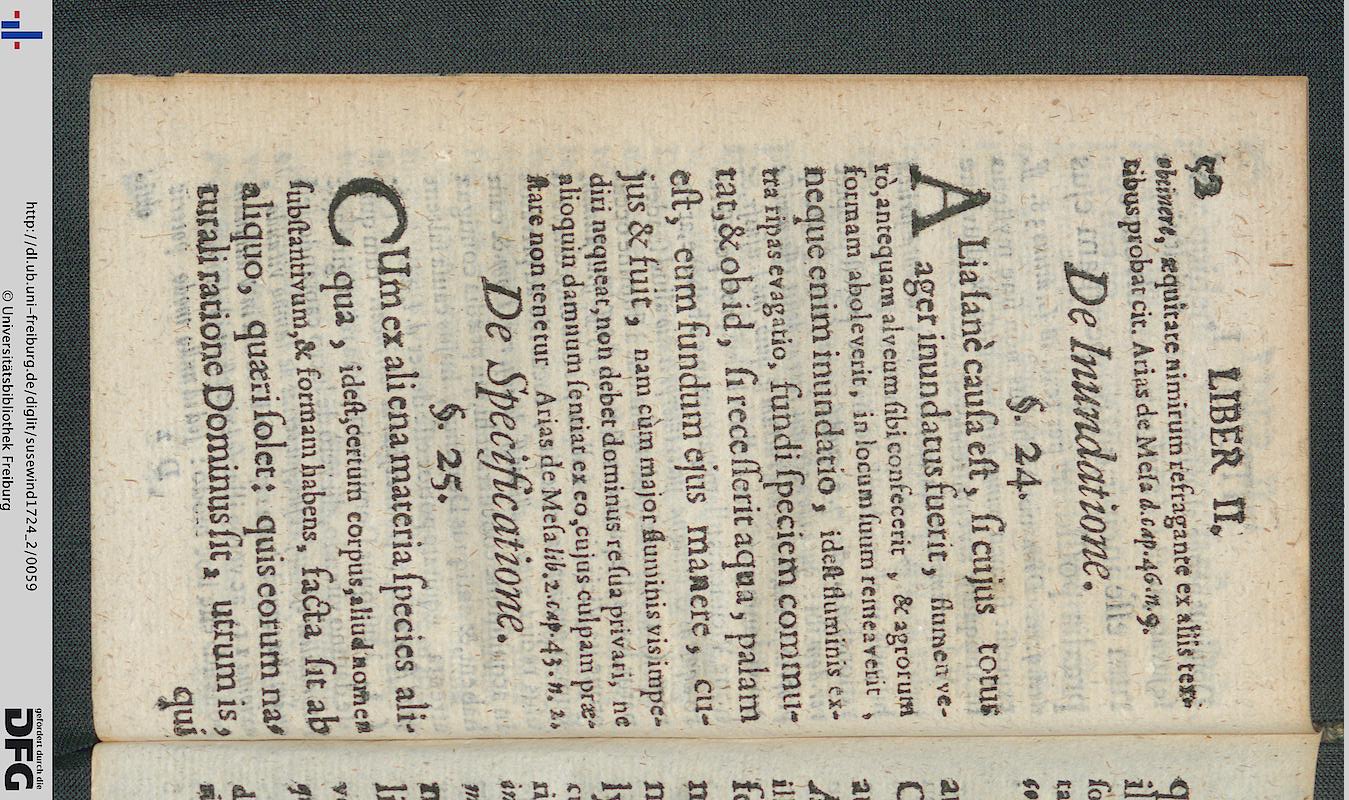 52 LIBER II.
obtinere, æquitate nimirum refragante ex aliis tex-
tibus probat cit. Arias de Mesa d. cap. 46. n. 9.
De Inundatione.
§. 24.
ALia sanè causa est, si cujus totus
ager inundatus fuerit, flumen ve-
rò, antequam alveum sibi confecerit, & agrorum
formam aboleverit, in locum suum remeaverit,
neque enim inundatio, idest fluminis ex-
tra ripas evagatio, fundi speciem commu-
tat, & ob id, si recesserit aqua, palam
est, eum fundum ejus manere, cu-
jus & fuit, nam cùm major fluminis vis impe-
diri nequeat, non debet dominus re sua privari, ne
alioquin damnum sentiat ex eo, cujus culpam præ-
stare non tenetur Arias de Mesa lib. 2. cap. 43. n. 2.
De Specificatione.
§. 25.
CUm ex aliena materia species ali-
qua, idest, certum corpus, aliud nomen
substantivum, & formam habens, facta sit ab
aliquo, quæri solet: quis eorum na-
turali ratione Dominus sit, utrum is,
qui
http://dl.ub.uni-freiburg.de/diglit/susewind1724_2/0059
© Universitätsbibliothek Freiburg
gefördert durch die
DFG